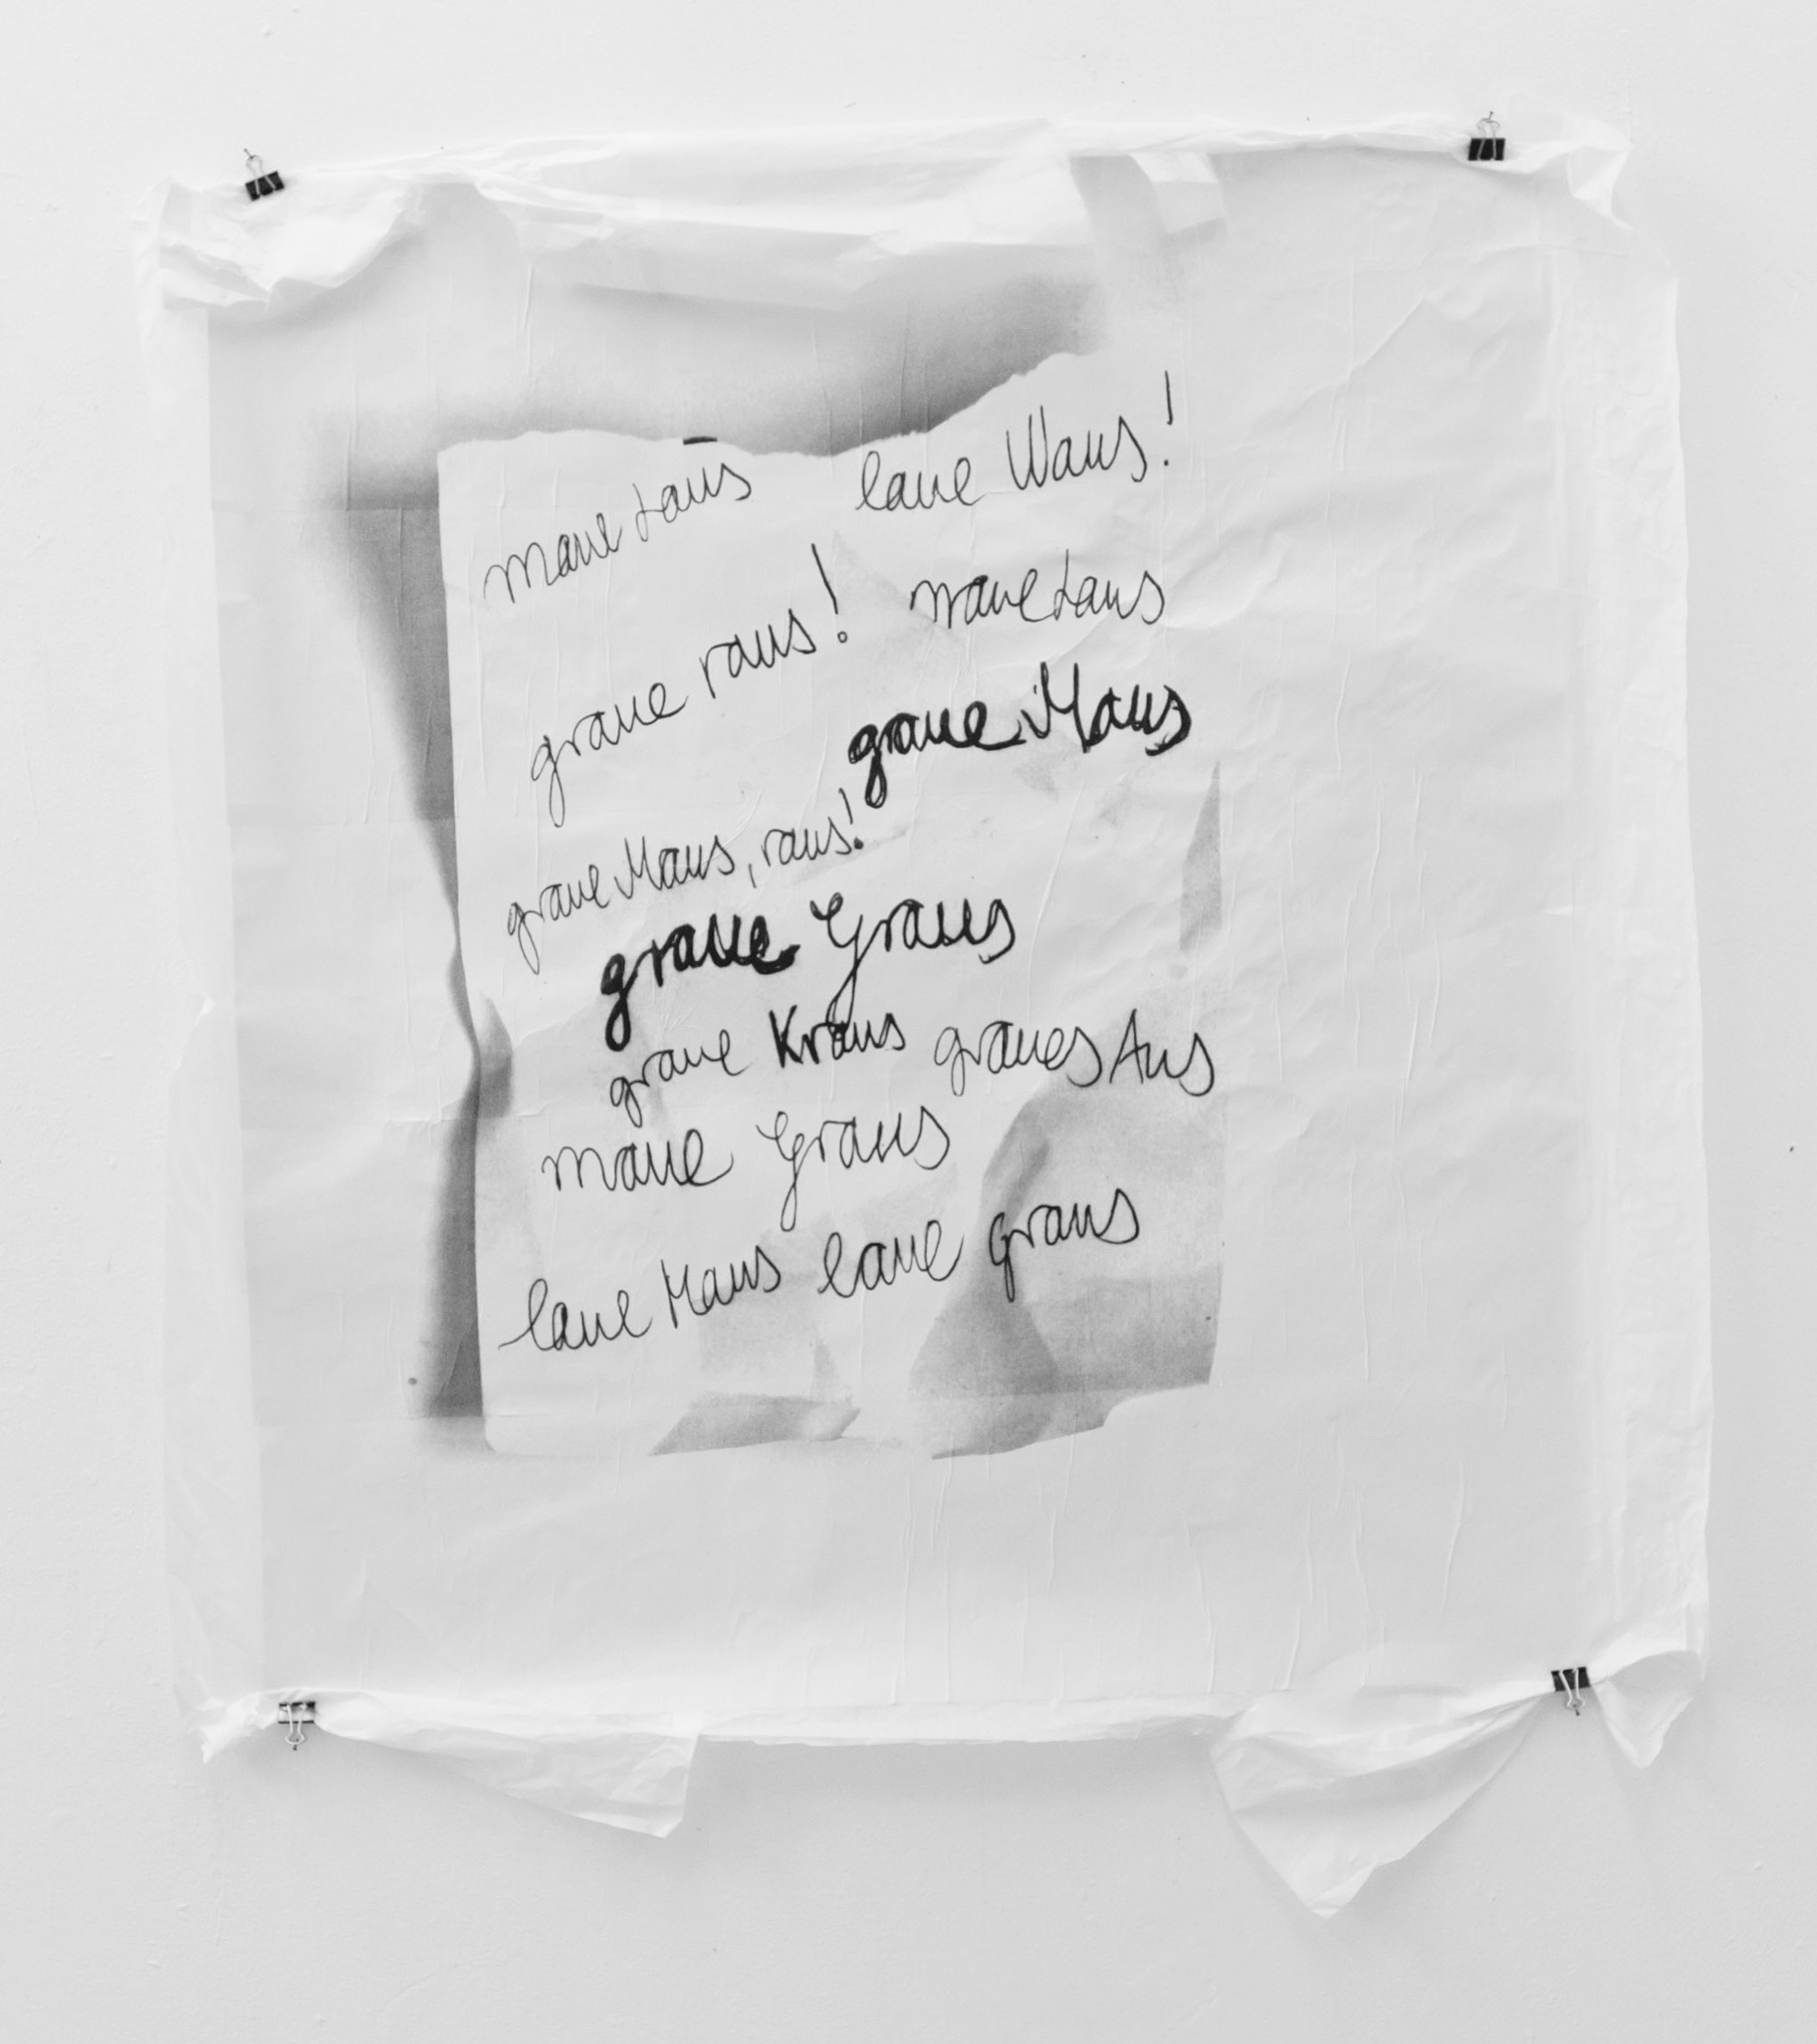 maue Laus laue Waus!
graue raus! maue Laus
graue Maus
graue Maus, raus!
graue Graus
graue Kraus graues Aus
maue Graus
laue Maus laue graus